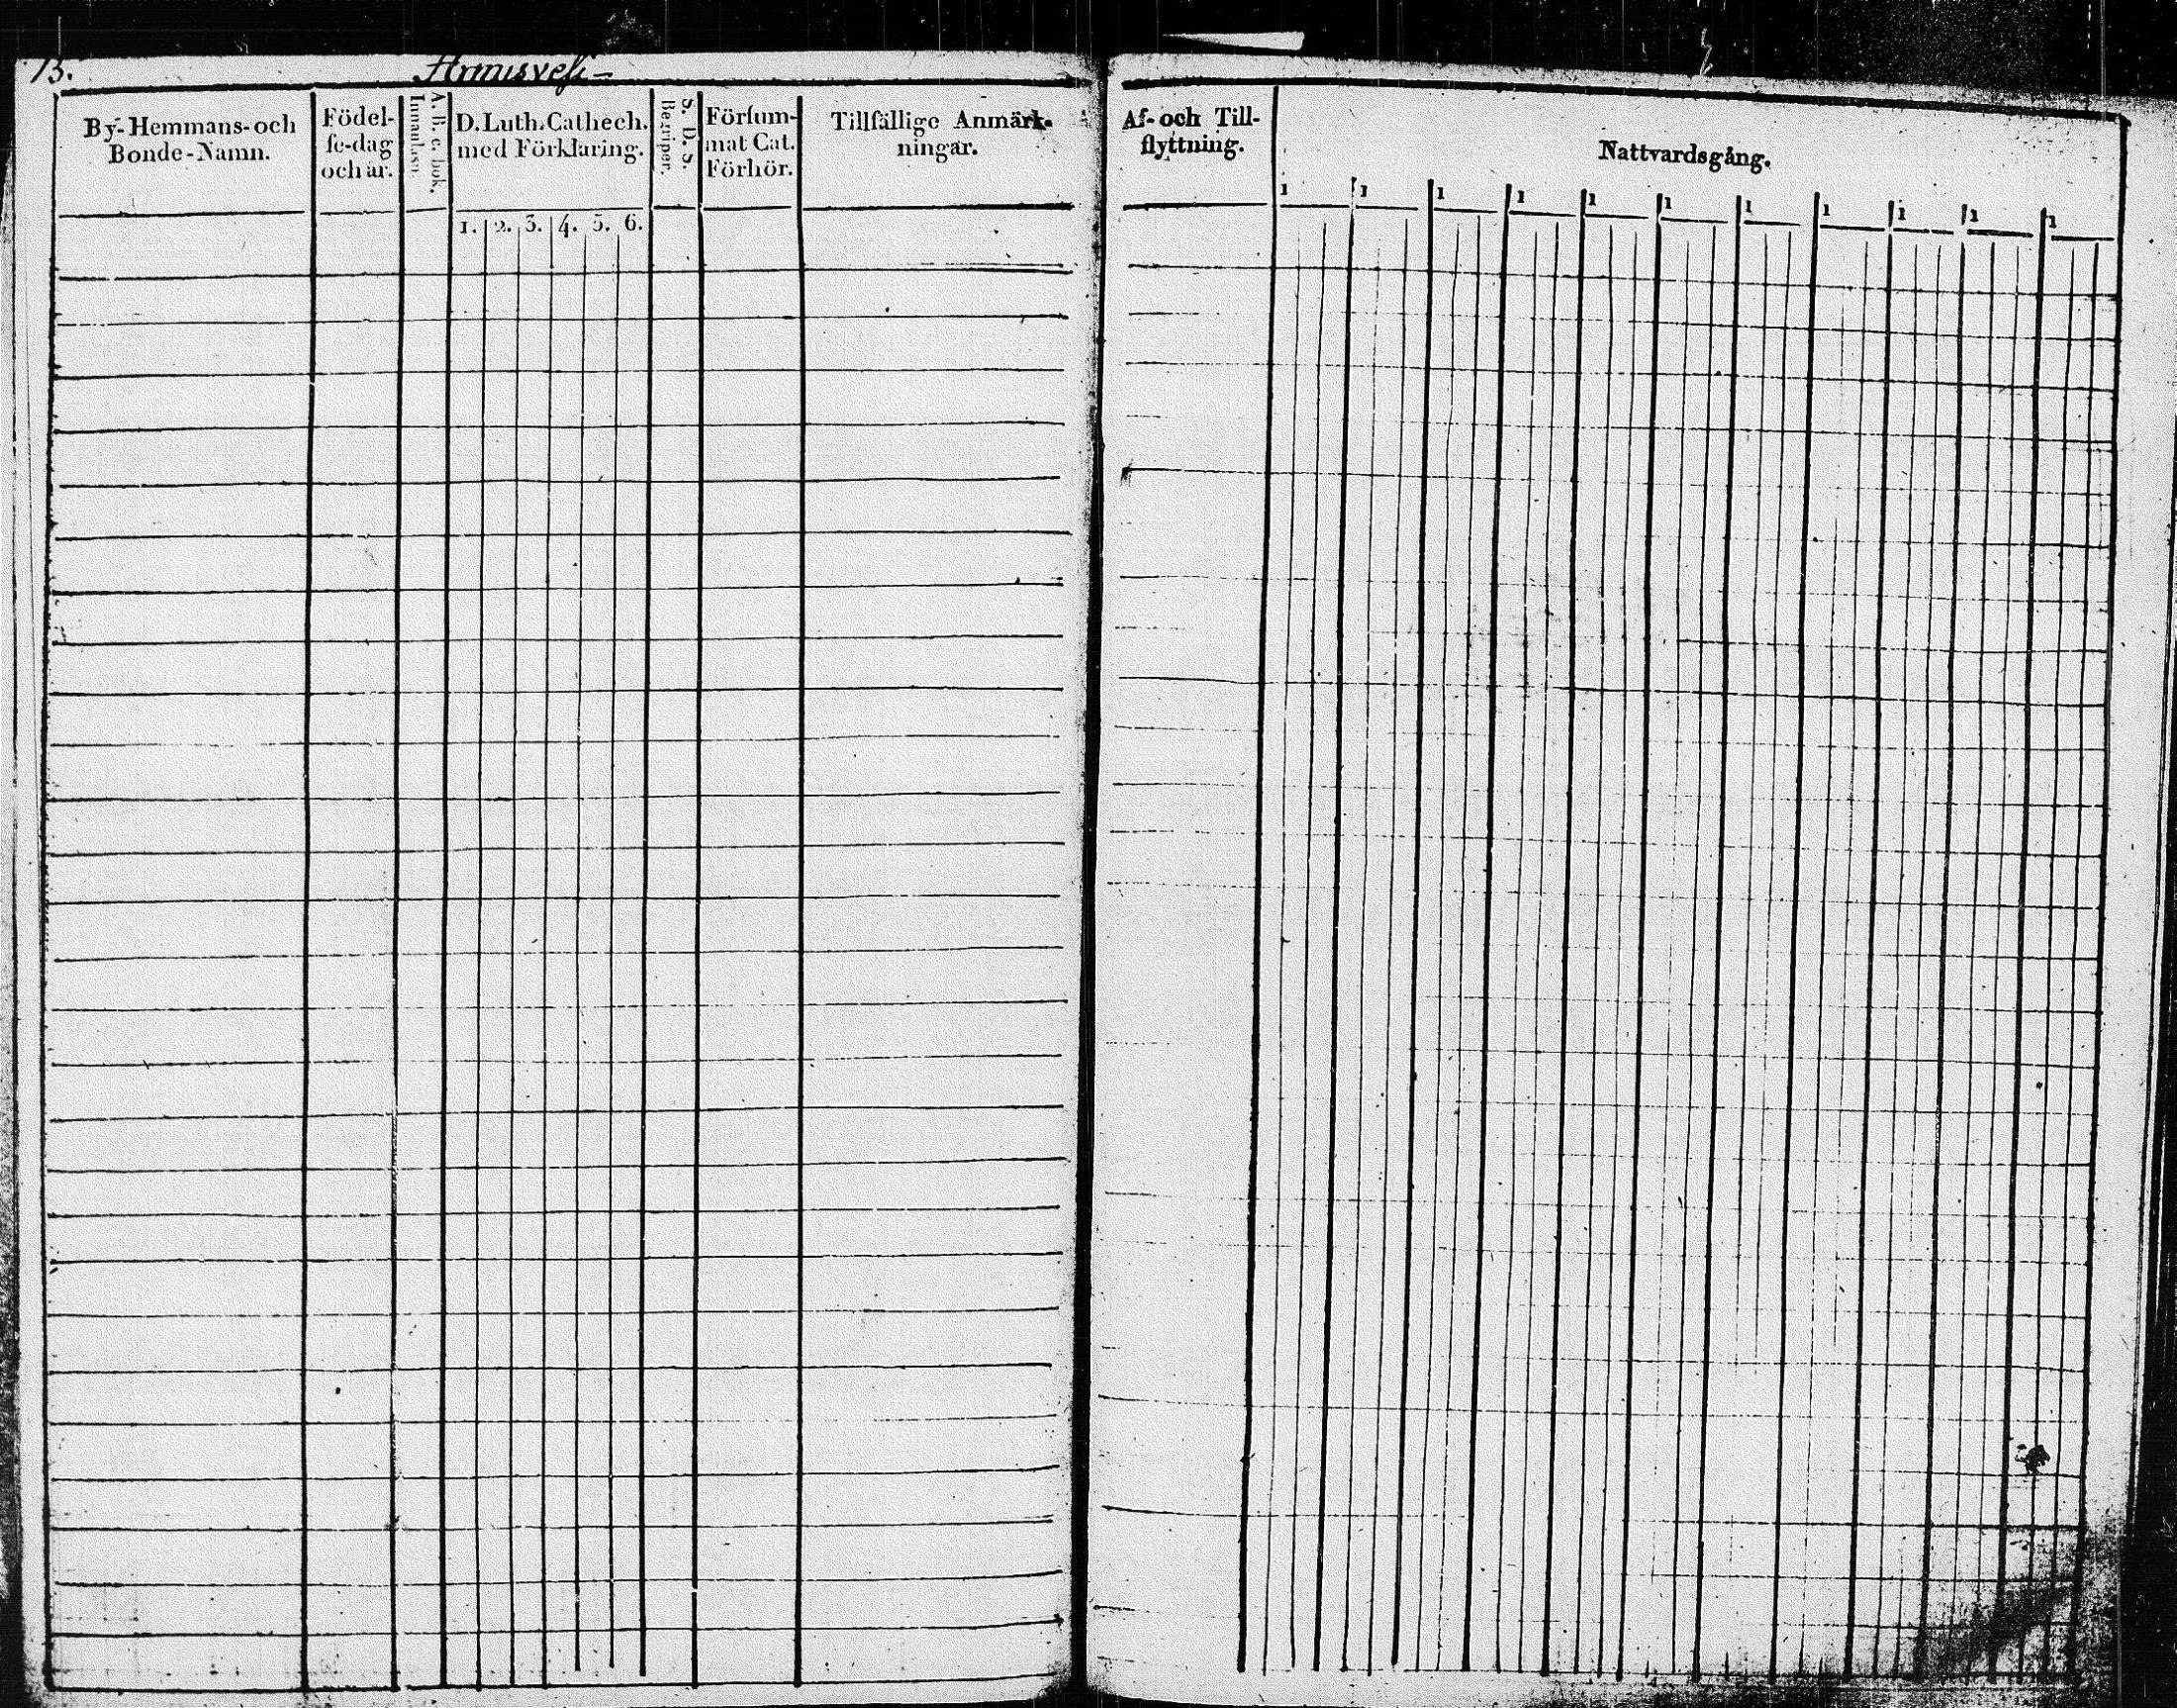 13.
Armisvesi
By-Hemmans-och
Bonde-Namn.
Födel-
se-dag
och år.
A. B. c. bok.
Innanläsn.
D. Luth. Cathech.
med Förklaring.
1. 2. 3. 4. 5. 6.
S. D. S.
Begriper.
Förſum-
mat Cat.
Förhör.
Tillfällige Anmärk-
ningar.
Af- och Till-
flyttning.
Nattvardsgång.
1 1 1 1 1 1 1 1 1 1 1